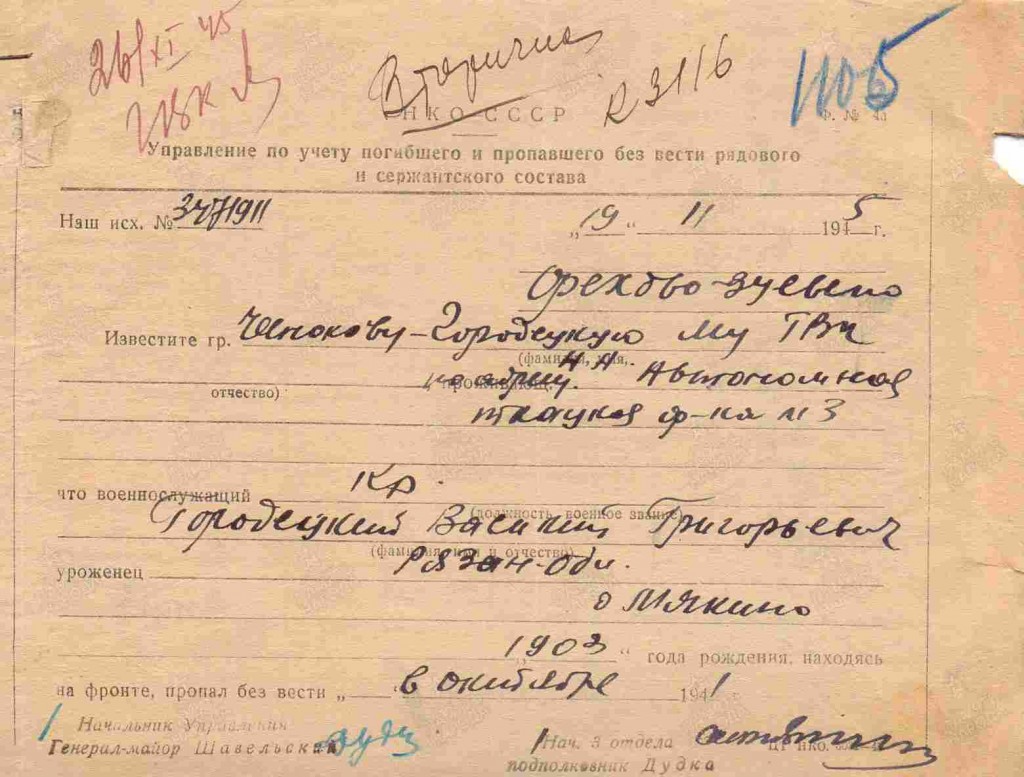 26/XI 45
Вторично
R 3116
1105
НКО СССР
Ф. №
Управление по учету погибшего и пропавшего без вести рядового
и сержантского состава
Наш исх. № 3471911
„19" 11 1945 г.
Орехово-Зуевско
Известите гр. Городецкую
(фамилия, имя,
отчество) проживающ. Автономная
ткацкая ф-ка № 3
что военнослужащий Кр.
(должность, военное звание)
Городецкий Василий Григорьевич
(фамилия, имя и отчество)
уроженец Рязан-Обл.
Мякино
„1903" года рождения, находясь
на фронте, пропал без вести „ в октябре 1941 г.
Начальник Управления
Генерал-майор Шавельский
Нач. 3 отдела
подполковник Дудка